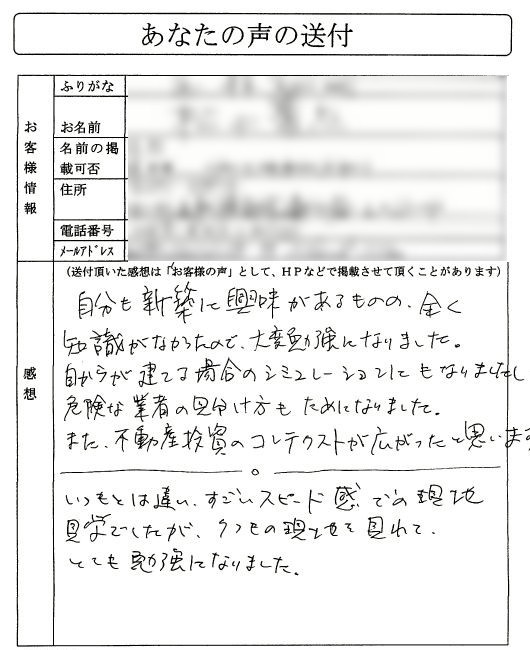 あなたの声の送付
お客様情報
ふりがな
お名前
名前の掲
載可否
住所
電話番号
メールアドレス
(送付頂いた感想は「お客様の声」として、HPなどで掲載させて頂くことがあります)
感想
自分も新築に興味があるものの、全く
知識がなかったので、大変勉強になりました。
自からが建てる場合のシミュレーションにもなりましたし
危険な業者の見分け方もためになりました。
また、不動産投資のコンテクストが広がったと思います
いつもとは違い、すごいスピード感での現地
見学でしたが、7つもの現地を見れて、
とても勉強になりました。